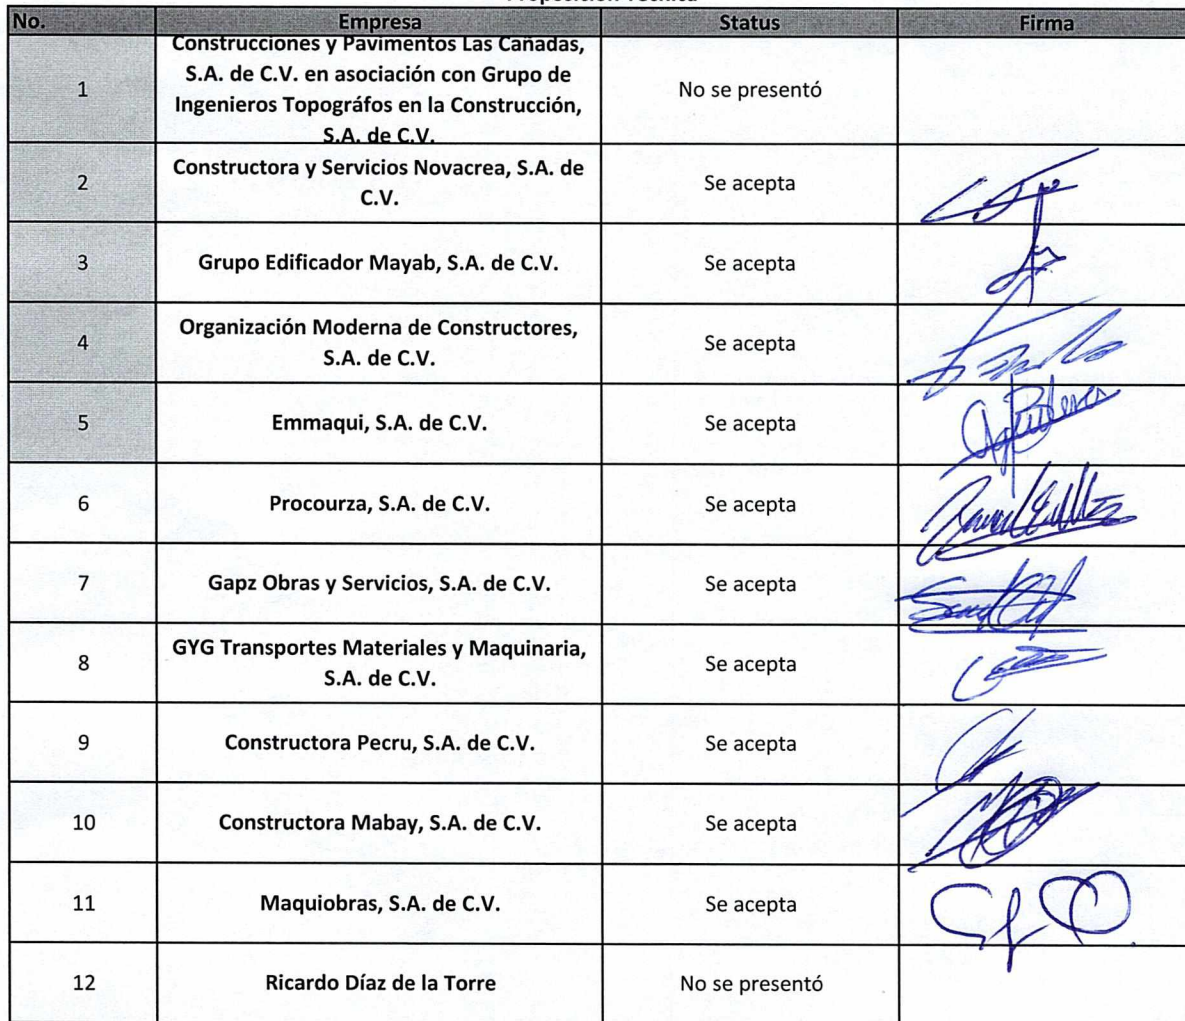 Proposición Técnica
No. Empresa Status Firma
1 Construcciones y Pavimentos Las Cañadas,
S.A. de C.V. en asociación con Grupo de
Ingenieros Topográfos en la Construcción,
S.A. de C.V. No se presentó
2 Constructora y Servicios Novacrea, S.A. de
C.V. Se acepta
3 Grupo Edificador Mayab, S.A. de C.V. Se acepta
4 Organización Moderna de Constructores,
S.A. de C.V. Se acepta
5 Emmaqui, S.A. de C.V. Se acepta
6 Procourza, S.A. de C.V. Se acepta
7 Gapz Obras y Servicios, S.A. de C.V. Se acepta
8 GYG Transportes Materiales y Maquinaria,
S.A. de C.V. Se acepta
9 Constructora Pecru, S.A. de C.V. Se acepta
10 Constructora Mabay, S.A. de C.V. Se acepta
11 Maquiobras, S.A. de C.V. Se acepta
12 Ricardo Díaz de la Torre No se presentó